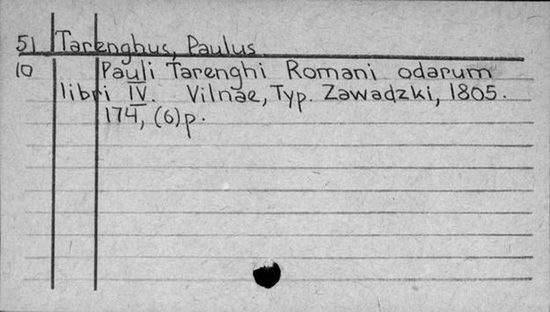 51 Tarenghus, Paulus
10 Pauli Tarenghi Romani odarum
libri IV. Vilnae, Typ. Zawadzki, 1805.
174, (6)p.